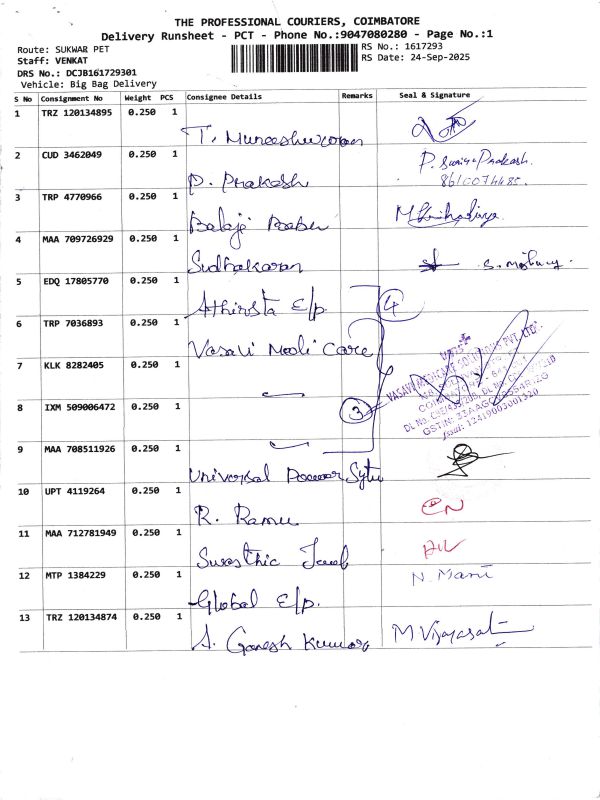 THE PROFESSIONAL COURIERS, COIMBATORE
Delivery Runsheet - PCT - Phone No.:9047080280 - Page No.:1
Route: SUKWAR PET
RS No.: 1617293
Staff: VENKAT
RS Date: 24-Sep-2025
DRS No.: DCJB161729301
Vehicle: Big Bag Delivery
S No Consignment No Weight PCS Consignee Details Remarks Seal & Signature
1 TRZ 120134895 0.250 1
T. Muneeshwaran
2 CUD 3462049 0.250 1
P. Prakash
P. Surya Prakash.
3 TRP 4770966 0.250 1
Balaji
4 MAA 709726929 0.250 1
Sudhakaran
5 EDQ 17805770 0.250 1
Athirsta E/p
4
6 TRP 7036893 0.250 1
Vasavi Medi Care
7 KLK 8282405 0.250 1
8 IXM 509006472 0.250 1
3
9 MAA 708511926 0.250 1
Universal Power
10 UPT 4119264 0.250 1
R. Ramu
11 MAA 712781949 0.250 1
12 MTP 1384229 0.250 1
Global E/p.
N. Mani
13 TRZ 120134874 0.250 1
A. Ganesh Kumar